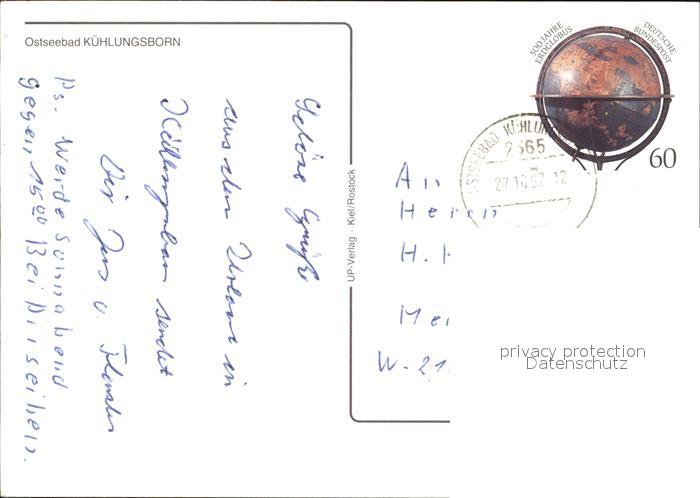 Ostseebad KÜHLUNGSBORN
500 JAHRE
ERDGLOBUS
DEUTSCHE
BUNDESPOST
60
OSTSEEBAD KÜHLUN
2565
27.10.92-12
Grüße
aus dem Urlaub in
sendet
Dir Jens u.
Ps. Werde Sonnabend
gegen 15 00 Bei Dir sein.
UP-Verlag · Kiel/Rostock
An
Herrn
H. H
Me
W-21
privacy protection
Datenschutz